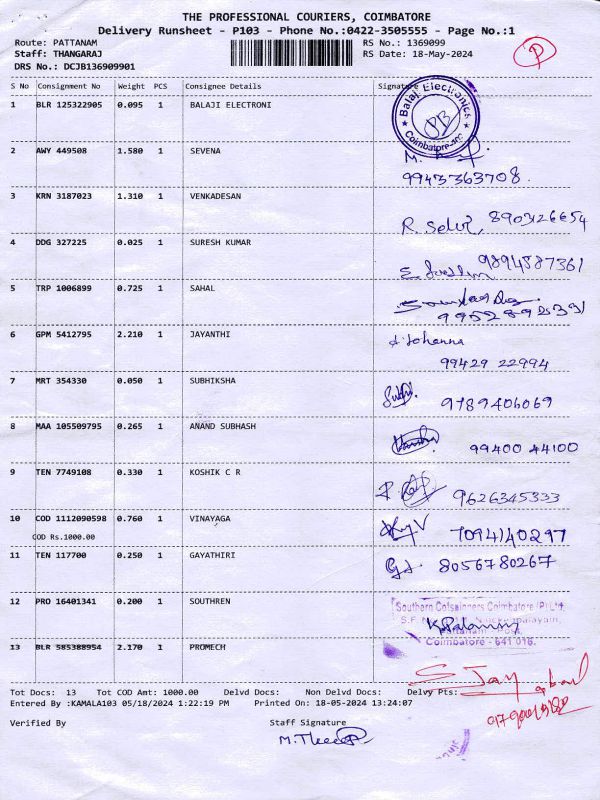 THE PROFESSIONAL COURIERS, COIMBATORE
Delivery Runsheet - P103 - Phone No.:0422-3505555 - Page No.:1
Route: PATTANAM RS No.: 1369099
Staff: THANGARAJ RS Date: 18-May-2024
DRS No.: DCJB136909901
P
S No Consignment No Weight PCS Consignee Details Signature
1 BLR 125322905 0.095 1 BALAJI ELECTRONI
Balaji Electronics
Coimbatore
2 AWY 449508 1.580 1 SEVENA
9943363708.
3 KRN 3187023 1.310 1 VENKADESAN
R. Selvi, 8903126654
4 DDG 327225 0.025 1 SURESH KUMAR
9894587361
5 TRP 1006899 0.725 1 SAHAL
6 GPM 5412795 2.210 1 JAYANTHI
99429 22994
7 MRT 354330 0.050 1 SUBHIKSHA
9789406069
8 MAA 105509795 0.265 1 ANAND SUBHASH
99400 44100
9 TEN 7749108 0.330 1 KOSHIK C R
9626345333
10 COD 1112090598 0.760 1 VINAYAGA
COD Rs.1000.00
7094140297
11 TEN 117700 0.250 1 GAYATHIRI
8056780267
12 PRO 16401341 0.200 1 SOUTHREN
Coimbatore (P) Ltd,
Coimbatore - 641 016.
13 BLR 585388954 2.170 1 PROMECH
Tot Docs: 13 Tot COD Amt: 1000.00 Delvd Docs: Non Delvd Docs: Delvy Pts:
Entered By :KAMALA103 05/18/2024 1:22:19 PM Printed On: 18-05-2024 13:24:07
Verified By Staff Signature